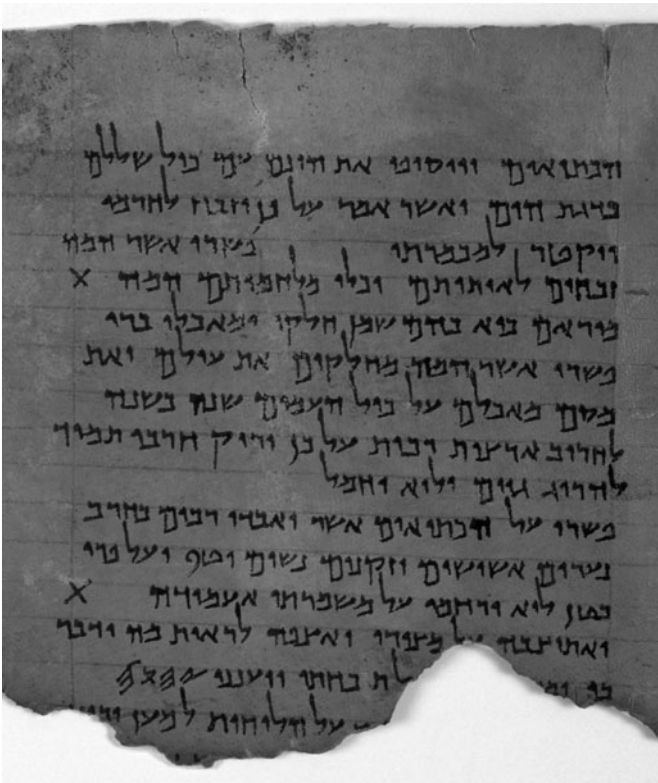 הכתיאים ויוסיפו את הונם עם כול שללם
כדגת הים ואשר אמר על כן יזבח לחרמו
ויקטר למכמרתו פשרו אשר המה
זבחים לאותותם וכלי מלחמותם המה X
מוראם כיא בהם שמן חלקו ומאכלו ברי
פשרו אשר המה מחלקים את עולם ואת
מסם מאכלם על כול העמים שנה בשנה
לחריב ארצות רבות על כן יריק חרבו תמיד
להרוג גוים ולוא יחמל
פשרו על הכתיאים אשר יאבדו רבים בחרב
נערים אשישים וזקנים נשים וטף ועל פרי
בטן לוא ירחמו על משמרתי אעמודה X
ואתיצבה על מצורי ואצפה לראות מה ידבר
בי ויענני 𐤉𐤄𐤅𐤄
על הלוחות למען ירוץ